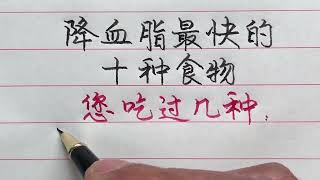 降血脂最快的
十种食物
您吃过几种: